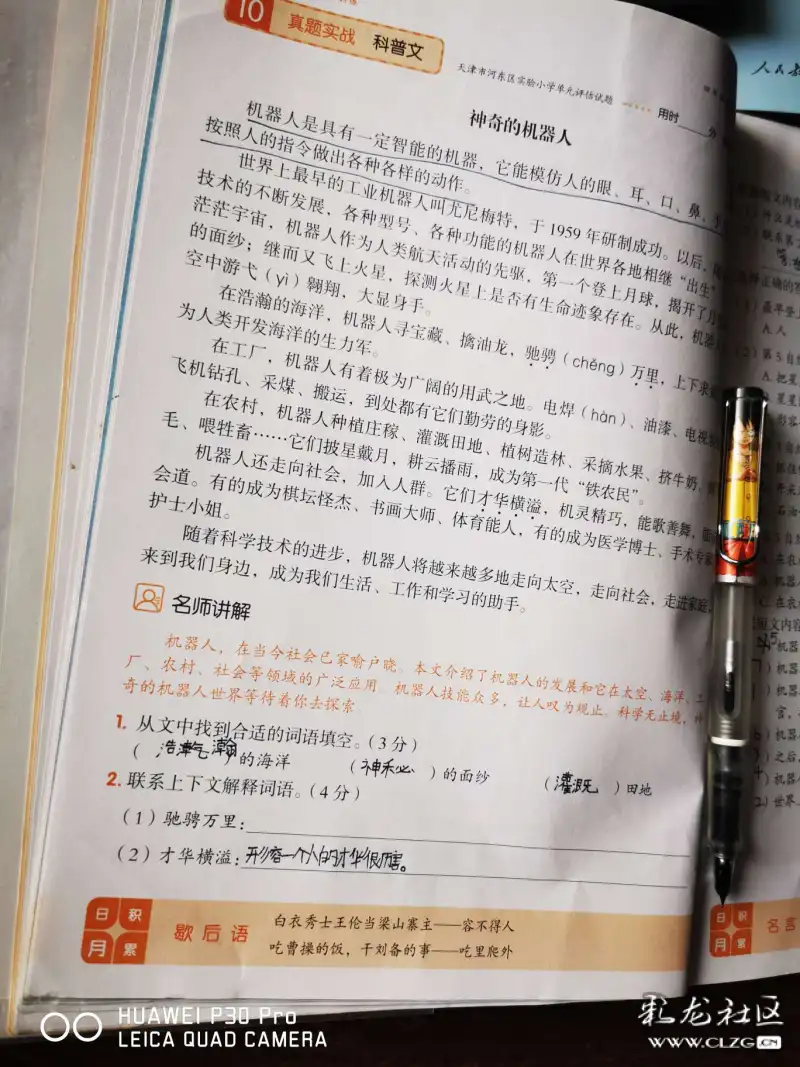 10 真题实战 科普文
天津市河东区实验小学单元评估试题
用时 分
神奇的机器人
机器人是具有一定智能的机器，它能模仿人的眼、耳、口、鼻、
按照人的指令做出各种各样的动作。
世界上最早的工业机器人叫尤尼梅特，于1959年研制成功。以后，
技术的不断发展，各种型号、各种功能的机器人在世界各地相继“出生”
茫茫宇宙，机器人作为人类航天活动的先驱，第一个登上月球，揭开了月
的面纱；继而又飞上火星，探测火星上是否有生命迹象存在。从此，机器
空中游弋（yì）翱翔，大显身手。
在浩瀚的海洋，机器人寻宝藏、擒油龙，驰骋（chěng）万里，上下求
为人类开发海洋的生力军。
在工厂，机器人有着极为广阔的用武之地。电焊（hàn）、油漆、电视
飞机钻孔、采煤、搬运，到处都有它们勤劳的身影。
在农村，机器人种植庄稼、灌溉田地、植树造林、采摘水果、挤牛奶、
毛、喂牲畜……它们披星戴月，耕云播雨，成为第一代“铁农民”。
机器人还走向社会，加入人群。它们才华横溢，机灵精巧，能歌善舞，
会道。有的成为棋坛怪杰、书画大师、体育能人，有的成为医学博士、手术专家
护士小姐。
随着科学技术的进步，机器人将越来越多地走向太空，走向社会，走进家庭
来到我们身边，成为我们生活、工作和学习的助手。
名师讲解
机器人，在当今社会已家喻户晓。本文介绍了机器人的发展和它在太空、海洋、工
厂、农村、社会等领域的广泛应用。机器人技能众多，让人叹为观止。科学无止境，
奇的机器人世界等待着你去探索。
1. 从文中找到合适的词语填空。（3分）
（浩瀚）的海洋 （神秘）的面纱 （灌溉）田地
2. 联系上下文解释词语。（4分）
（1）驰骋万里：
（2）才华横溢：形容一个人的才华很厉害。
日积月累
歇后语
白衣秀士王伦当梁山寨主——容不得人
吃曹操的饭，干刘备的事——吃里爬外
人民教
日积月累
名言
HUAWEI P30 Pro
LEICA QUAD CAMERA
彩龙社区
WWW.CLZG.CN